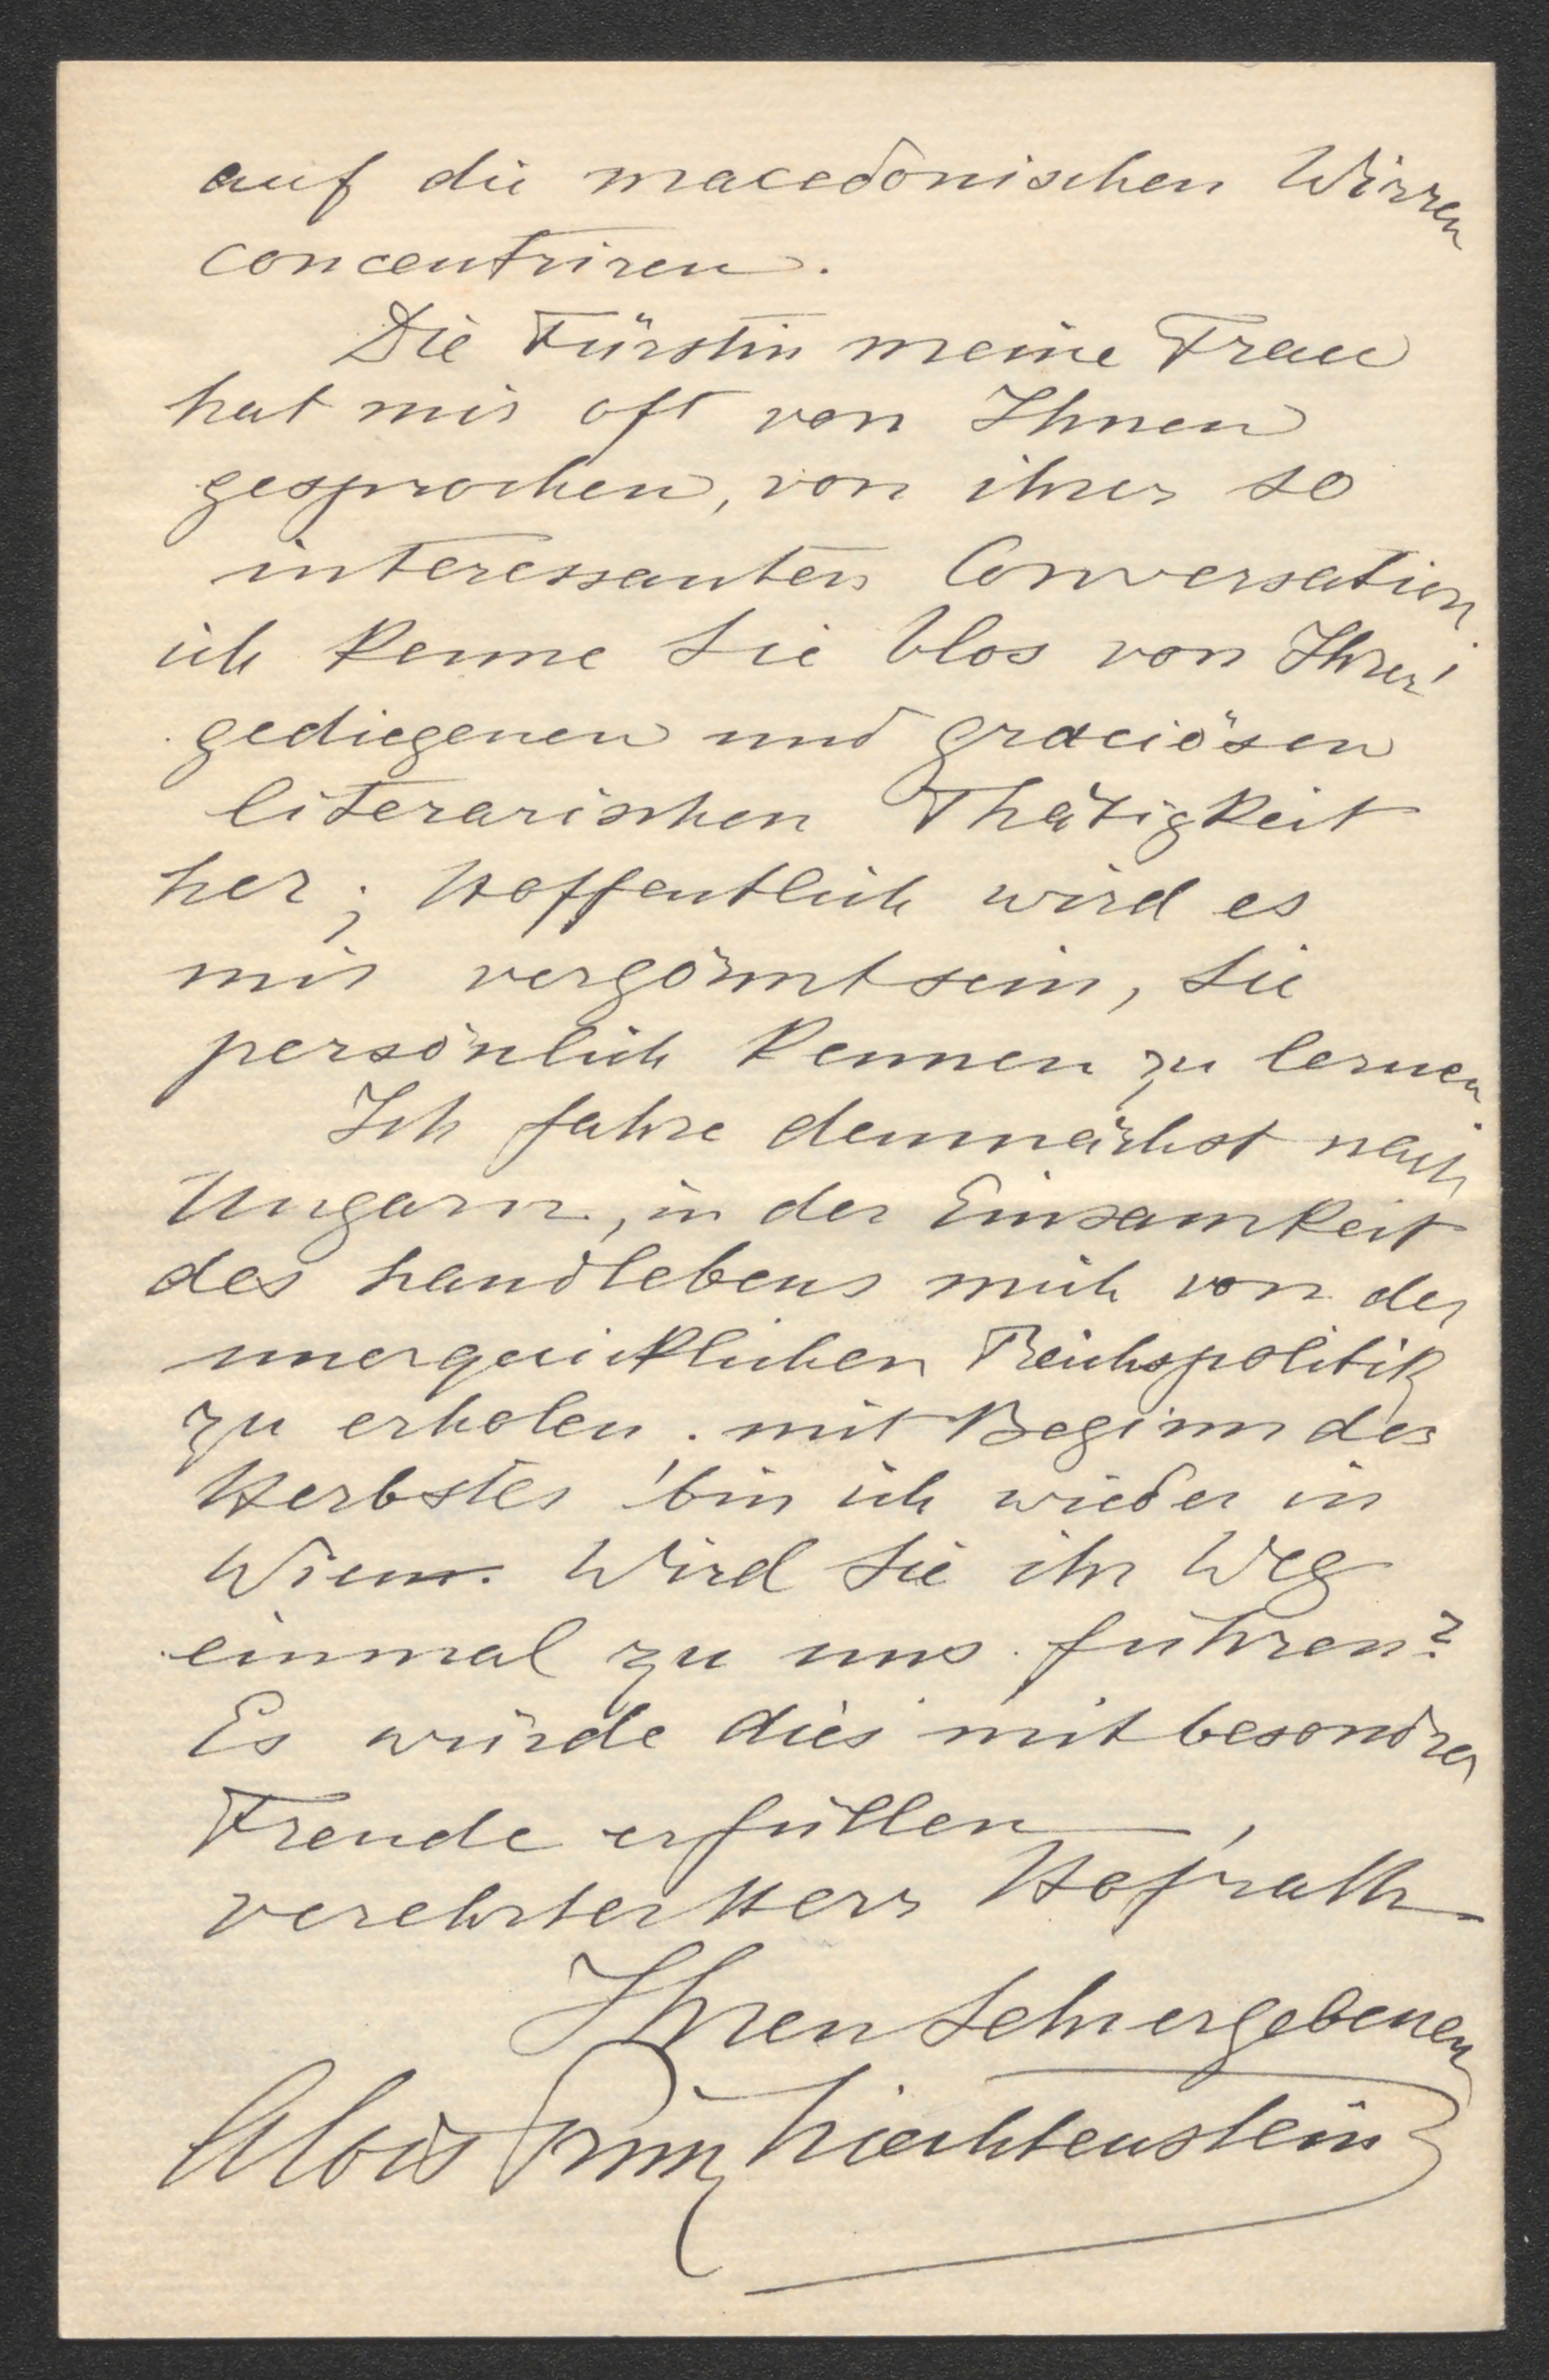 auf die macedonischen Wirren
concentriren.
Die Fürstin meine Frau
hat mir oft von Ihnen
gesprochen, von ihrer so
interessanten Conversation;
ich kenne Sie blos von Ihrer
gediegenen und graciösen
literarischen Thätigkeit
her; Hoffentlich wird es
mir vergönnt sein, Sie
persönlich kennen zu lernen
Ich fahre demnächst nach
Ungarn, in der Einsamkeit
des Landlebens mich von der
unerquicklichen Reichspolitik
zu erholen. mit Beginn des
Herbstes bin ich wieder in
Wien. Wird Sie ihr Weg
einmal zu uns führen?
Es würde dies mit besondrer
Freude erfüllen,
verehrter Herr Hofrath
Ihren Sehr ergebenen
Alois Prinz Liechtenstein